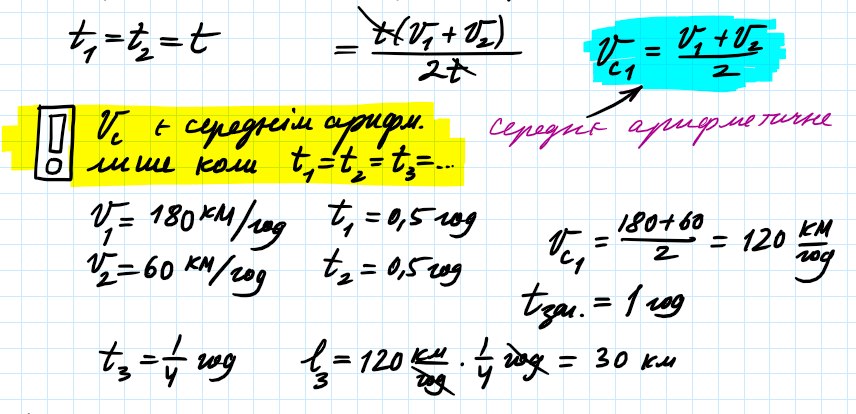 t₁ = t₂ = t = t(v₁ + v₂) / 2t v_c₁ = (v₁ + v₂) / 2
! v_c є середнім арифм. середнє арифметичне
лише коли t₁ = t₂ = t₃ = ...
v₁ = 180 км/год t₁ = 0,5 год
v₂ = 60 км/год t₂ = 0,5 год
v_c₁ = (180+60) / 2 = 120 км/год
t заг. = 1 год
t₃ = 1/4 год l₃ = 120 км/год · 1/4 год = 30 км